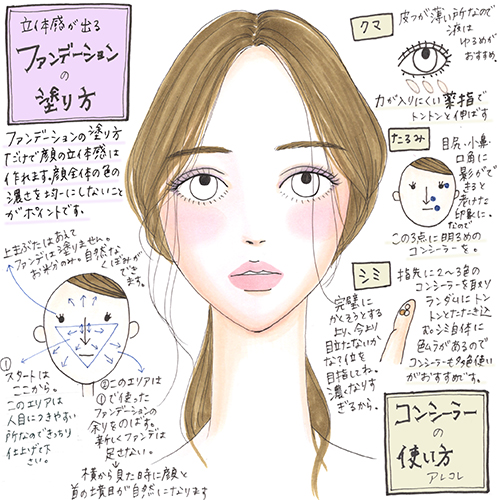 立体感が出る
ファンデーション
の
塗り方
ファンデーションの塗り方
だけで顔の立体感は
作れます。顔全体の色の
濃さを均一にしないこと
がポイントです。
上まぶたはあえて
ファンデは塗りません。
お粉のみ。自然な
くぼみがで
きます。
①
スタートは
ここから。
このエリアは
人目につきやすい
所なのできっちり
仕上げて下
さい。
②このエリアは
①で使った
ファンデーションの
余りをのばす。
新しくファンデは
足さない。
横から見た時に顔と
首の境目が自然になります
クマ
皮ふが薄い所なので
液は
ゆるめが
おすすめ。
力が入りにくい薬指で
トントンと伸ばす
たるみ
目尻・小鼻・
口角に
影がで
きると
老けた
印象に。
なので
この3点に明るめの
コンシーラーを。
シミ
指先に2〜3色の
コンシーラーを取り
ランダムにトン
トンとたたき込
む。シミ自体に
色ムラがあるので
コンシーラーも多色使い
がおすすめです。
完璧に
かくそうとする
より、今より
目立たないか
な?位を
目指してね。
濃くなりす
ぎるから。
コンシーラー
の
使い方
アレコレ